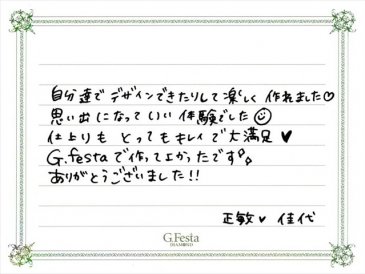 自分達でデザインできたりして楽しく作れました♡
思い出になっていい体験でした☺
仕上りもとってもキレイで大満足♥
G.festaで作ってよかったです♪
ありがとうございました!!
正敏♥佳代
G.Festa
DIAMOND